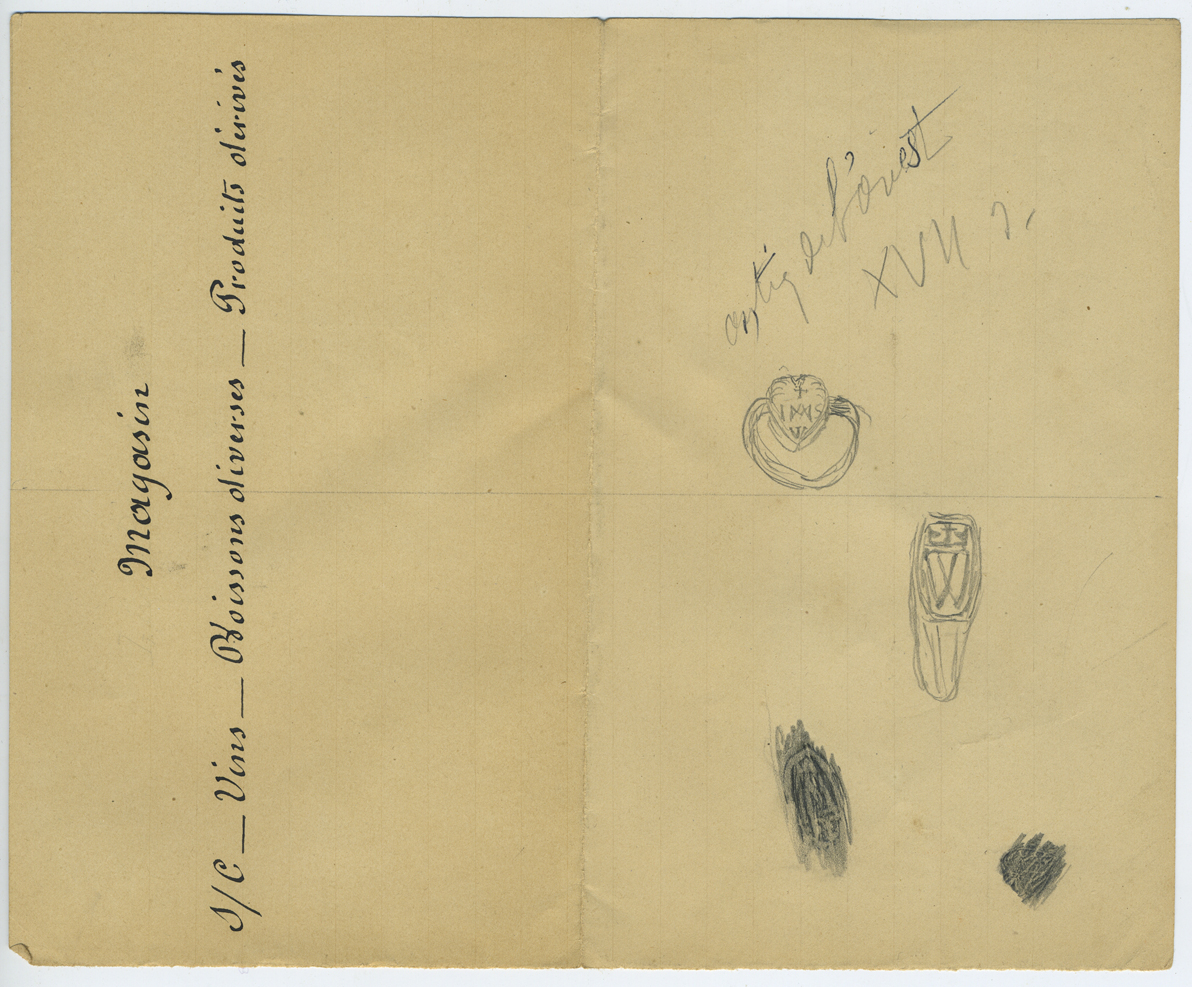 Magasin
S/C — Vins — Boissons diverses — Produits dérivés
de l'ouest
XVII
IHS